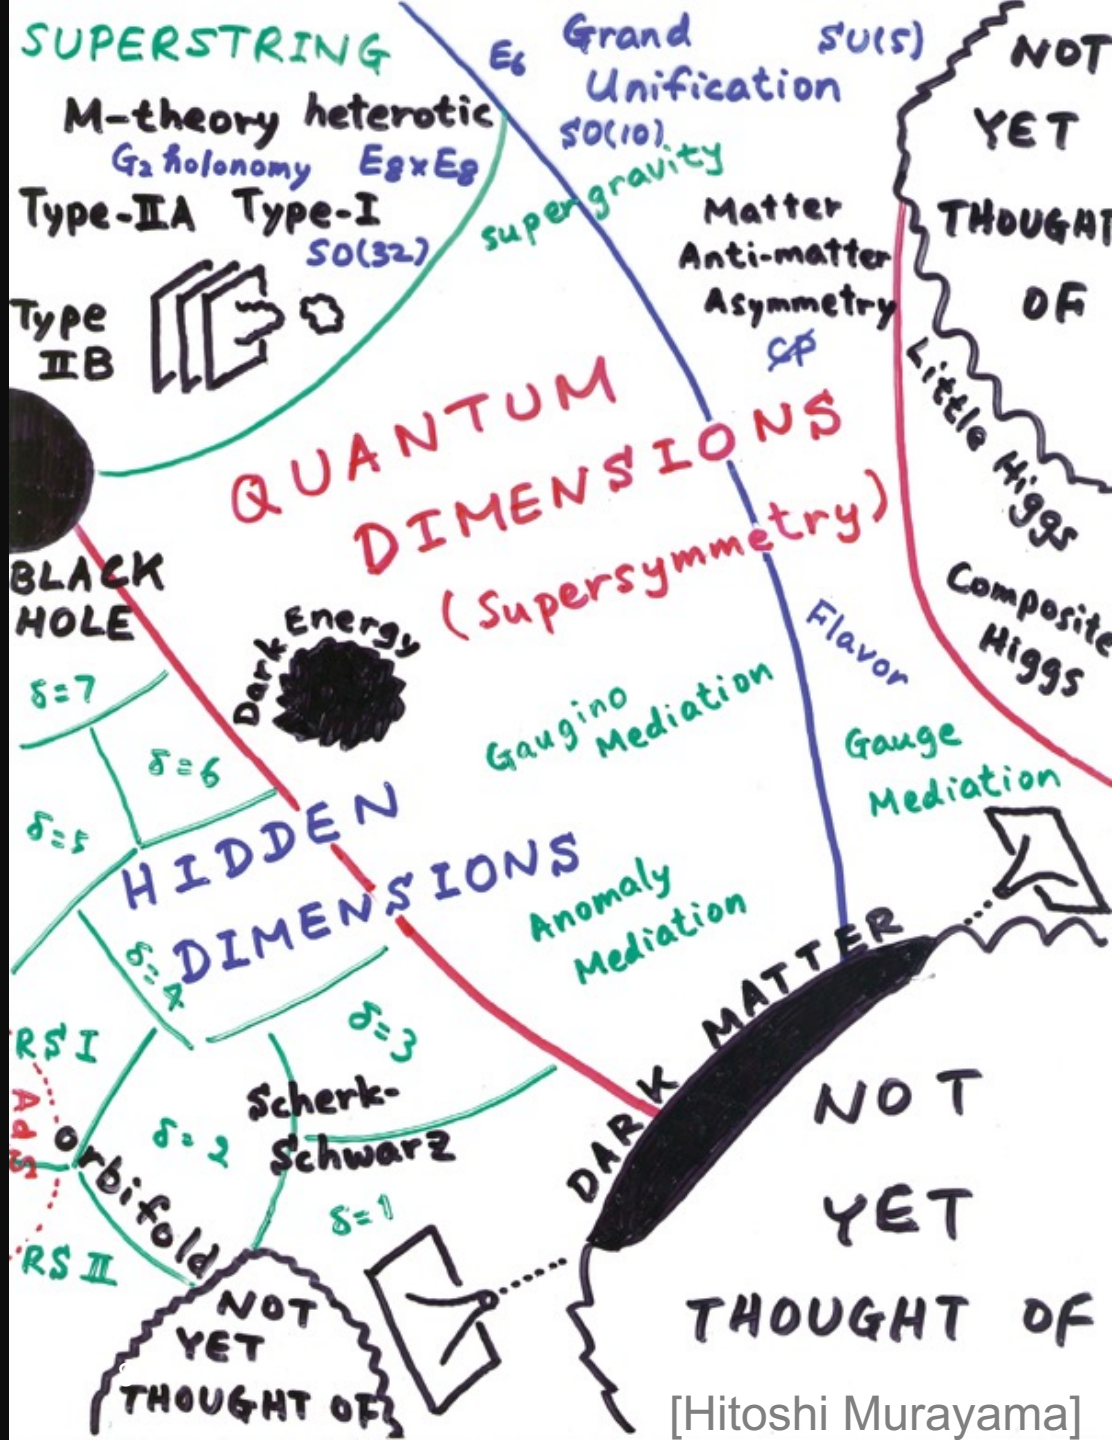 SUPERSTRING
M-theory heterotic
G₂ holonomy E₈xE₈
Type-IIA Type-I
SO(32)
Type
IIB
E₆
Grand
Unification
SU(5)
SO(10)
supergravity
Matter
Anti-matter
Asymmetry
CP
NOT
YET
THOUGHT
OF
Little Higgs
Composite
Higgs
QUANTUM
DIMENSIONS
(Supersymmetry)
BLACK
HOLE
Dark Energy
Flavor
Gaugino
Mediation
Gauge
Mediation
Anomaly
Mediation
δ=7
δ=6
δ=5
HIDDEN
DIMENSIONS
δ=4
δ=3
DARK MATTER
RS I
AdS
orbifold
δ=2
Scherk-
Schwarz
δ=1
RS II
NOT
YET
THOUGHT OF
NOT
YET
THOUGHT OF
[Hitoshi Murayama]